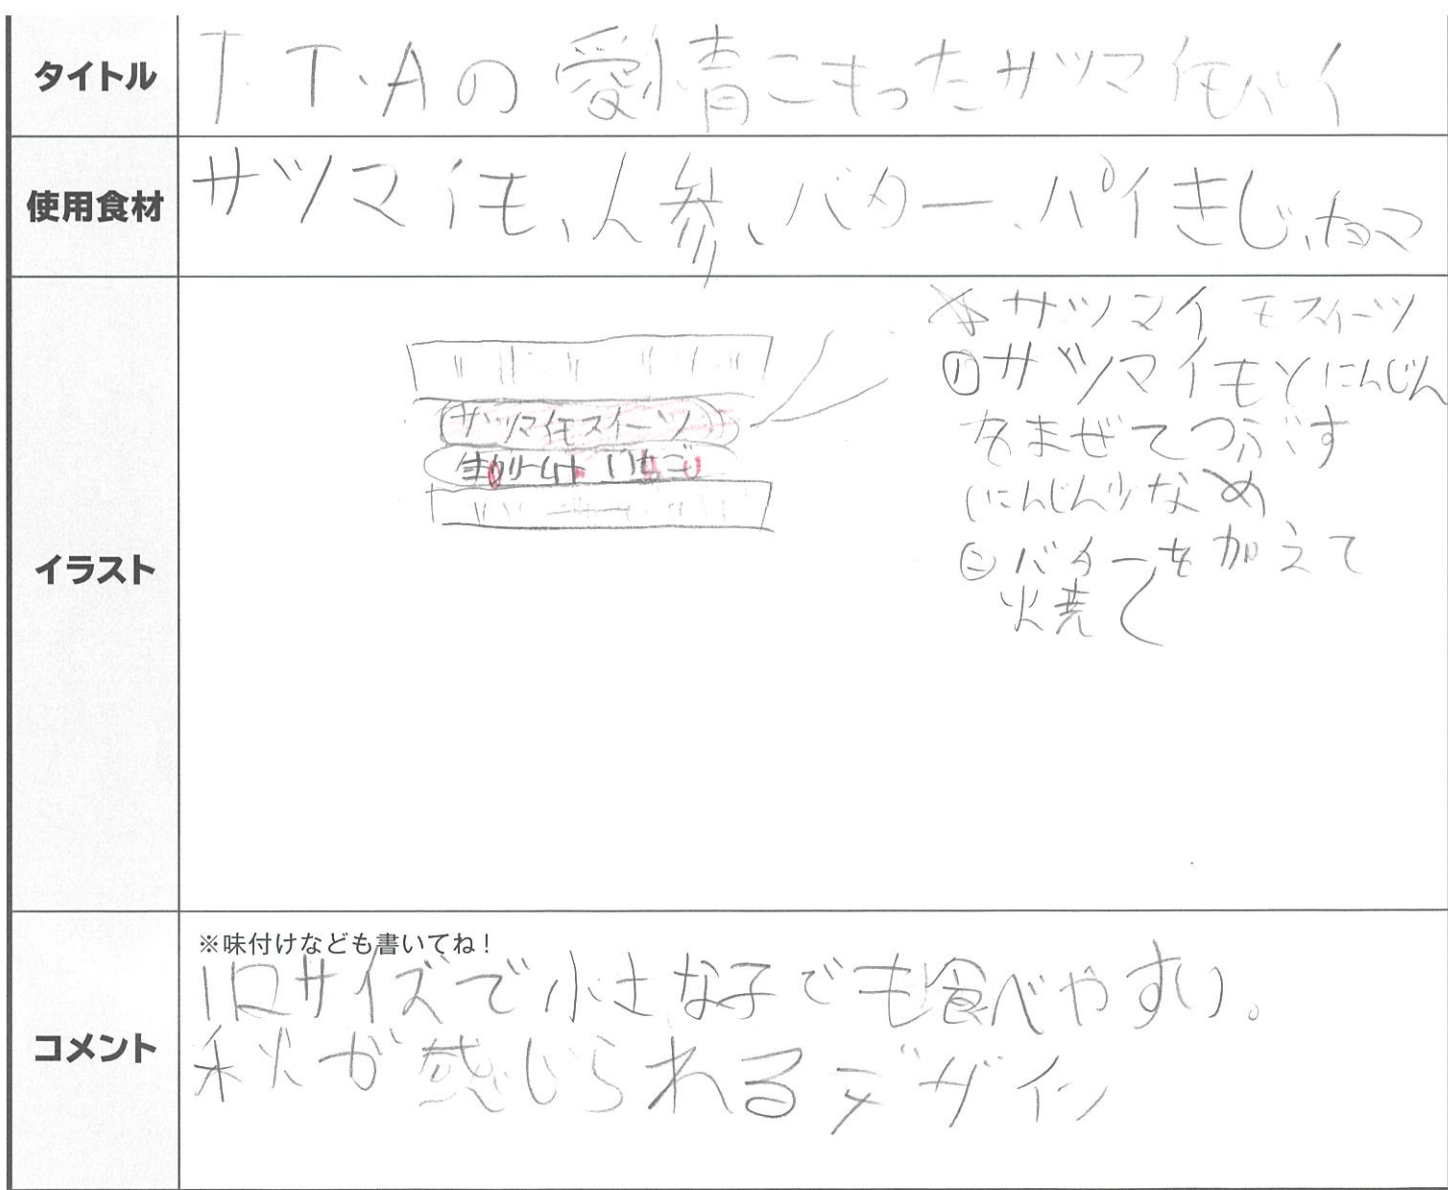 タイトル
T.T.Aの愛情こもったサツマイモパイ
使用食材
サツマイモ、人参、バター、パイきじ、
イラスト
サツマイモスイーツ
生クリームと いちご
※サツマイモスイーツ
①サツマイモとにんじん
をまぜてつぶす
にんじん少なめ
②バターを加えて
焼く
コメント
※味付けなども書いてね!
1口サイズで小さな子でも食べやすい。
秋が感じられるデザイン